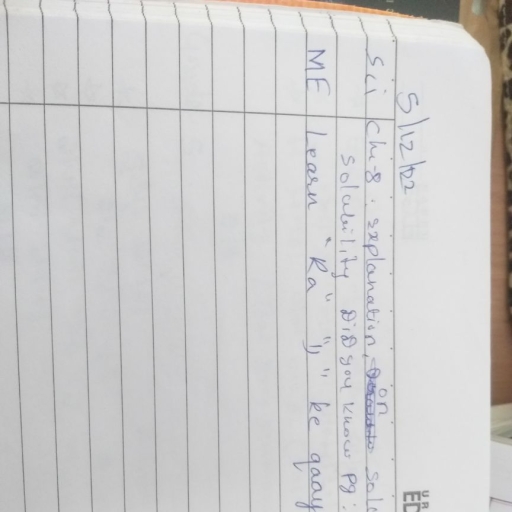 5/12/22
Sci Ch-8 : explanation, on solu
solubility DiD you know pg:
ME Learn "Ra" "," ke qaay